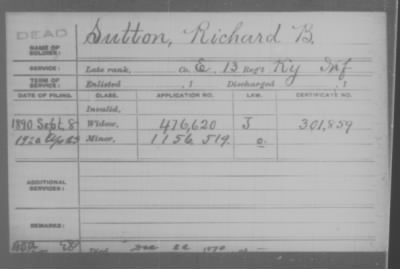 DEAD
NAME OF SOLDIER: Sutton, Richard B.
SERVICE: Late rank, Co. E, 13 Reg't Ky Inf
TERM OF SERVICE: Enlisted , 1 Discharged , 1
DATE OF FILING. CLASS. APPLICATION NO. LAW. CERTIFICATE NO.
Invalid,
1890 Sept. 8 Widow, 476,620 J 301,859
1920 Minor, 1156 519 o
ADDITIONAL SERVICES:
REMARKS:
Died